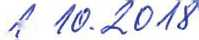 1 10.2018